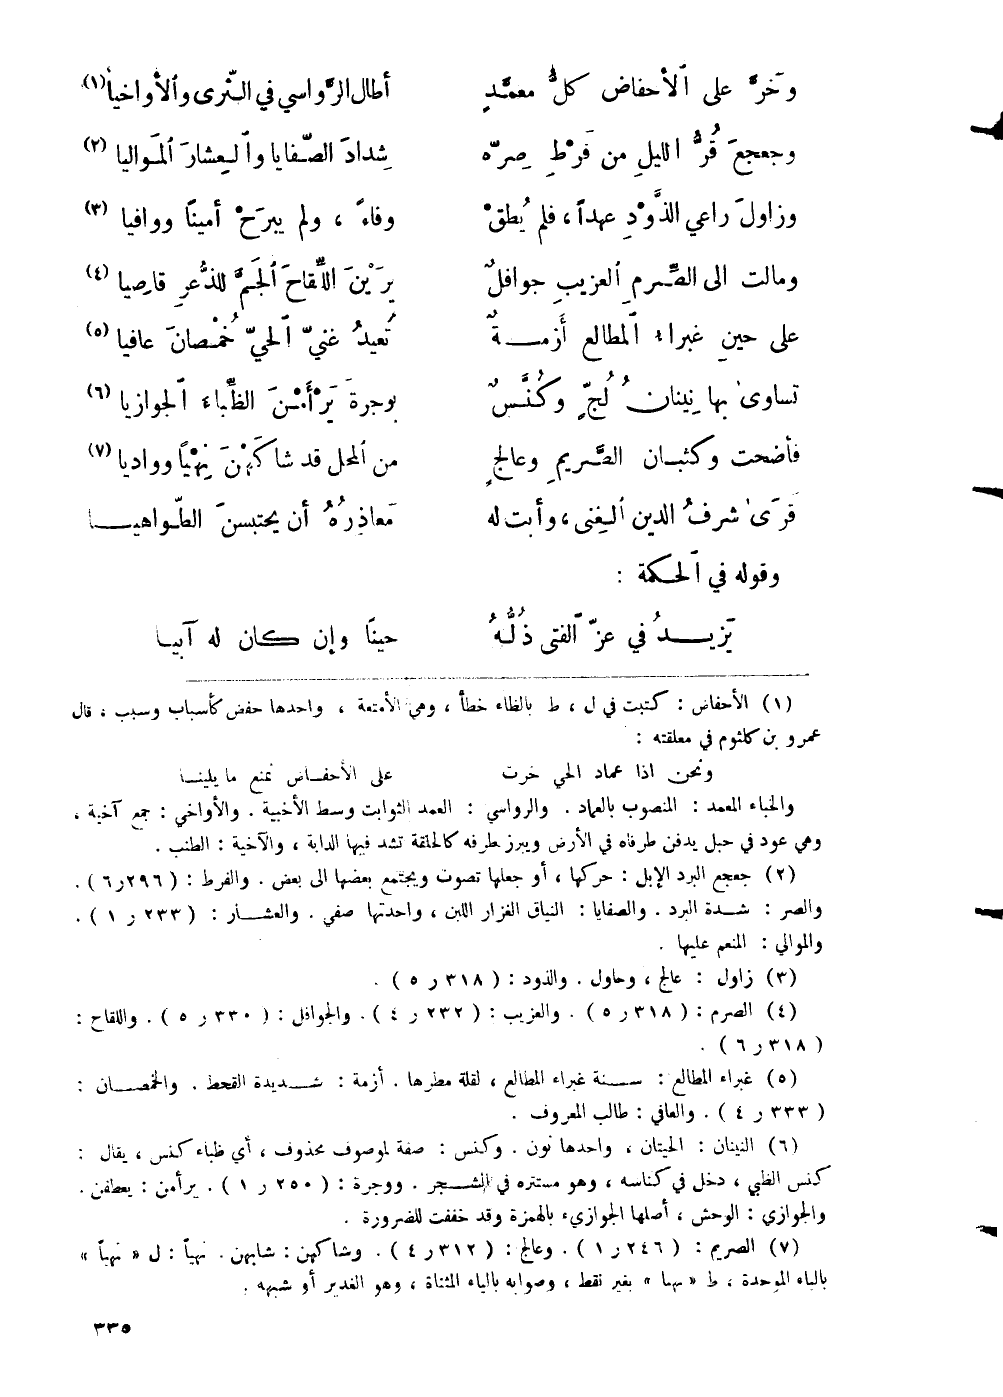 وَخرَّ على ٱلأحفاض كلُّ معمَّدٍ أطال الرَّواسي في الثّرى وٱلأواخيا (١)
وجعجعَ قُرُّ الليلِ من فَرْطِ صِرّه شِدادَ الصّفايا وٱلعِشارَ ٱلمَواليا (٢)
وزاولَ راعي الذَّودِ عهداً، فلم يُطقْ وفاءً ، ولم يبرَحْ أمينًا ووافيا (٣)
ومالت الى الصِّرمِ ٱلعزيبِ جوافلٌ يرَيْنَ اللِّقاحَ ٱلجَمَّ للذُّعرِ قارصيا (٤)
على حينِ غبراء ٱلمطالع أَزمــةٌ تُعيدُ غنيّ ٱلحيّ خُمْصانَ عافيا (٥)
تساوىٰ بها نِينانُ لُجٍّ وكُنَّسٌ بوجرةَ يَرْأَمْنَ الظِّباءَ ٱلجوازيا (٦)
فأضحت وكثبـان الصَّريمِ وعالجٍ من ٱلمحل قد شاكَهْنَ نِهْيًا وواديا (٧)
قَرَىٰ شرفُ الدين ٱلغِنى، وأبت له مَعاذِرُهُ أن يحتبسنَ الطّواهيــا
وقوله في ٱلحكمة :
يَزيــدُ في عزّ ٱلفتى ذُلُّـهُ حينًا وإن كان له آبيـا
(١) الأحفاض : كتبت في ل ، ط بالظاء خطأ ، وهي الأمتعة ، واحدها حفض كأسباب وسبب ، قال
عمرو بن كلثوم في معلقته :
ونحن اذا عماد الحي خرت على الأحفـاض نمنع ما يلينـا
والخباء المعمد : المنصوب بالعماد . والرواسي : العمد الثوابت وسط الأخبية . والأواخي : جمع آخية ،
وهي عود في حبل يدفن طرفاه في الأرض ويبرز طرفه كالحلقة تشد فيها الدابة ، والآخية : الطنب .
(٢) جعجع البرد الإبل : حركها ، أو جعلها تصوت ويجتمع بعضها الى بعض . والفرط : (٢٩٦ر٦) .
والصر : شــدة البرد . والصفايا : النياق الغزار اللبن ، واحدتها صفي . والعشــار : (٢٣٣ ر ١) .
والموالي : المنعم عليها .
(٣) زاول : عالج ، وحاول . والذود : ( ٣١٨ ر ٥ ) .
(٤) الصرم : (٣١٨ ر ٥) . والعزيب : (٢٣٢ ر ٤) . والجوافل : (٣٣٠ ر ٥) . واللقاح :
(٣١٨ ر ٦) .
(٥) غبراء المطالع : ســنة غبراء المطالع ، لقلة مطرها . أزمة : شــديدة القحط . والخمصــان :
(٣٣٣ ر ٤) . والعافي : طالب المعروف .
(٦) النينان : الحيتان ، واحدها نون . وكنس : صفة لموصوف محذوف ، أي ظباء كنس ، يقال :
كنس الظبي ، دخل في كناسه ، وهو مستتره في الشــجر . ووجرة : (٢٥٠ ر ١) . يرأمن : يعطفن .
والجوازي : الوحش ، أصلها الجوازيء بالهمزة وقد خففت للضرورة .
(٧) الصريم : (٢٤٦ ر ١) . وعالج : (٣١٢ر ٤) . وشاكهن : شابهن . نهياً : ل « نهباً »
بالباء الموحدة ، ط « بغير نقط ، وصوابه بالياء المثناة ، وهو الغدير أو شبهه .
٣٣٥